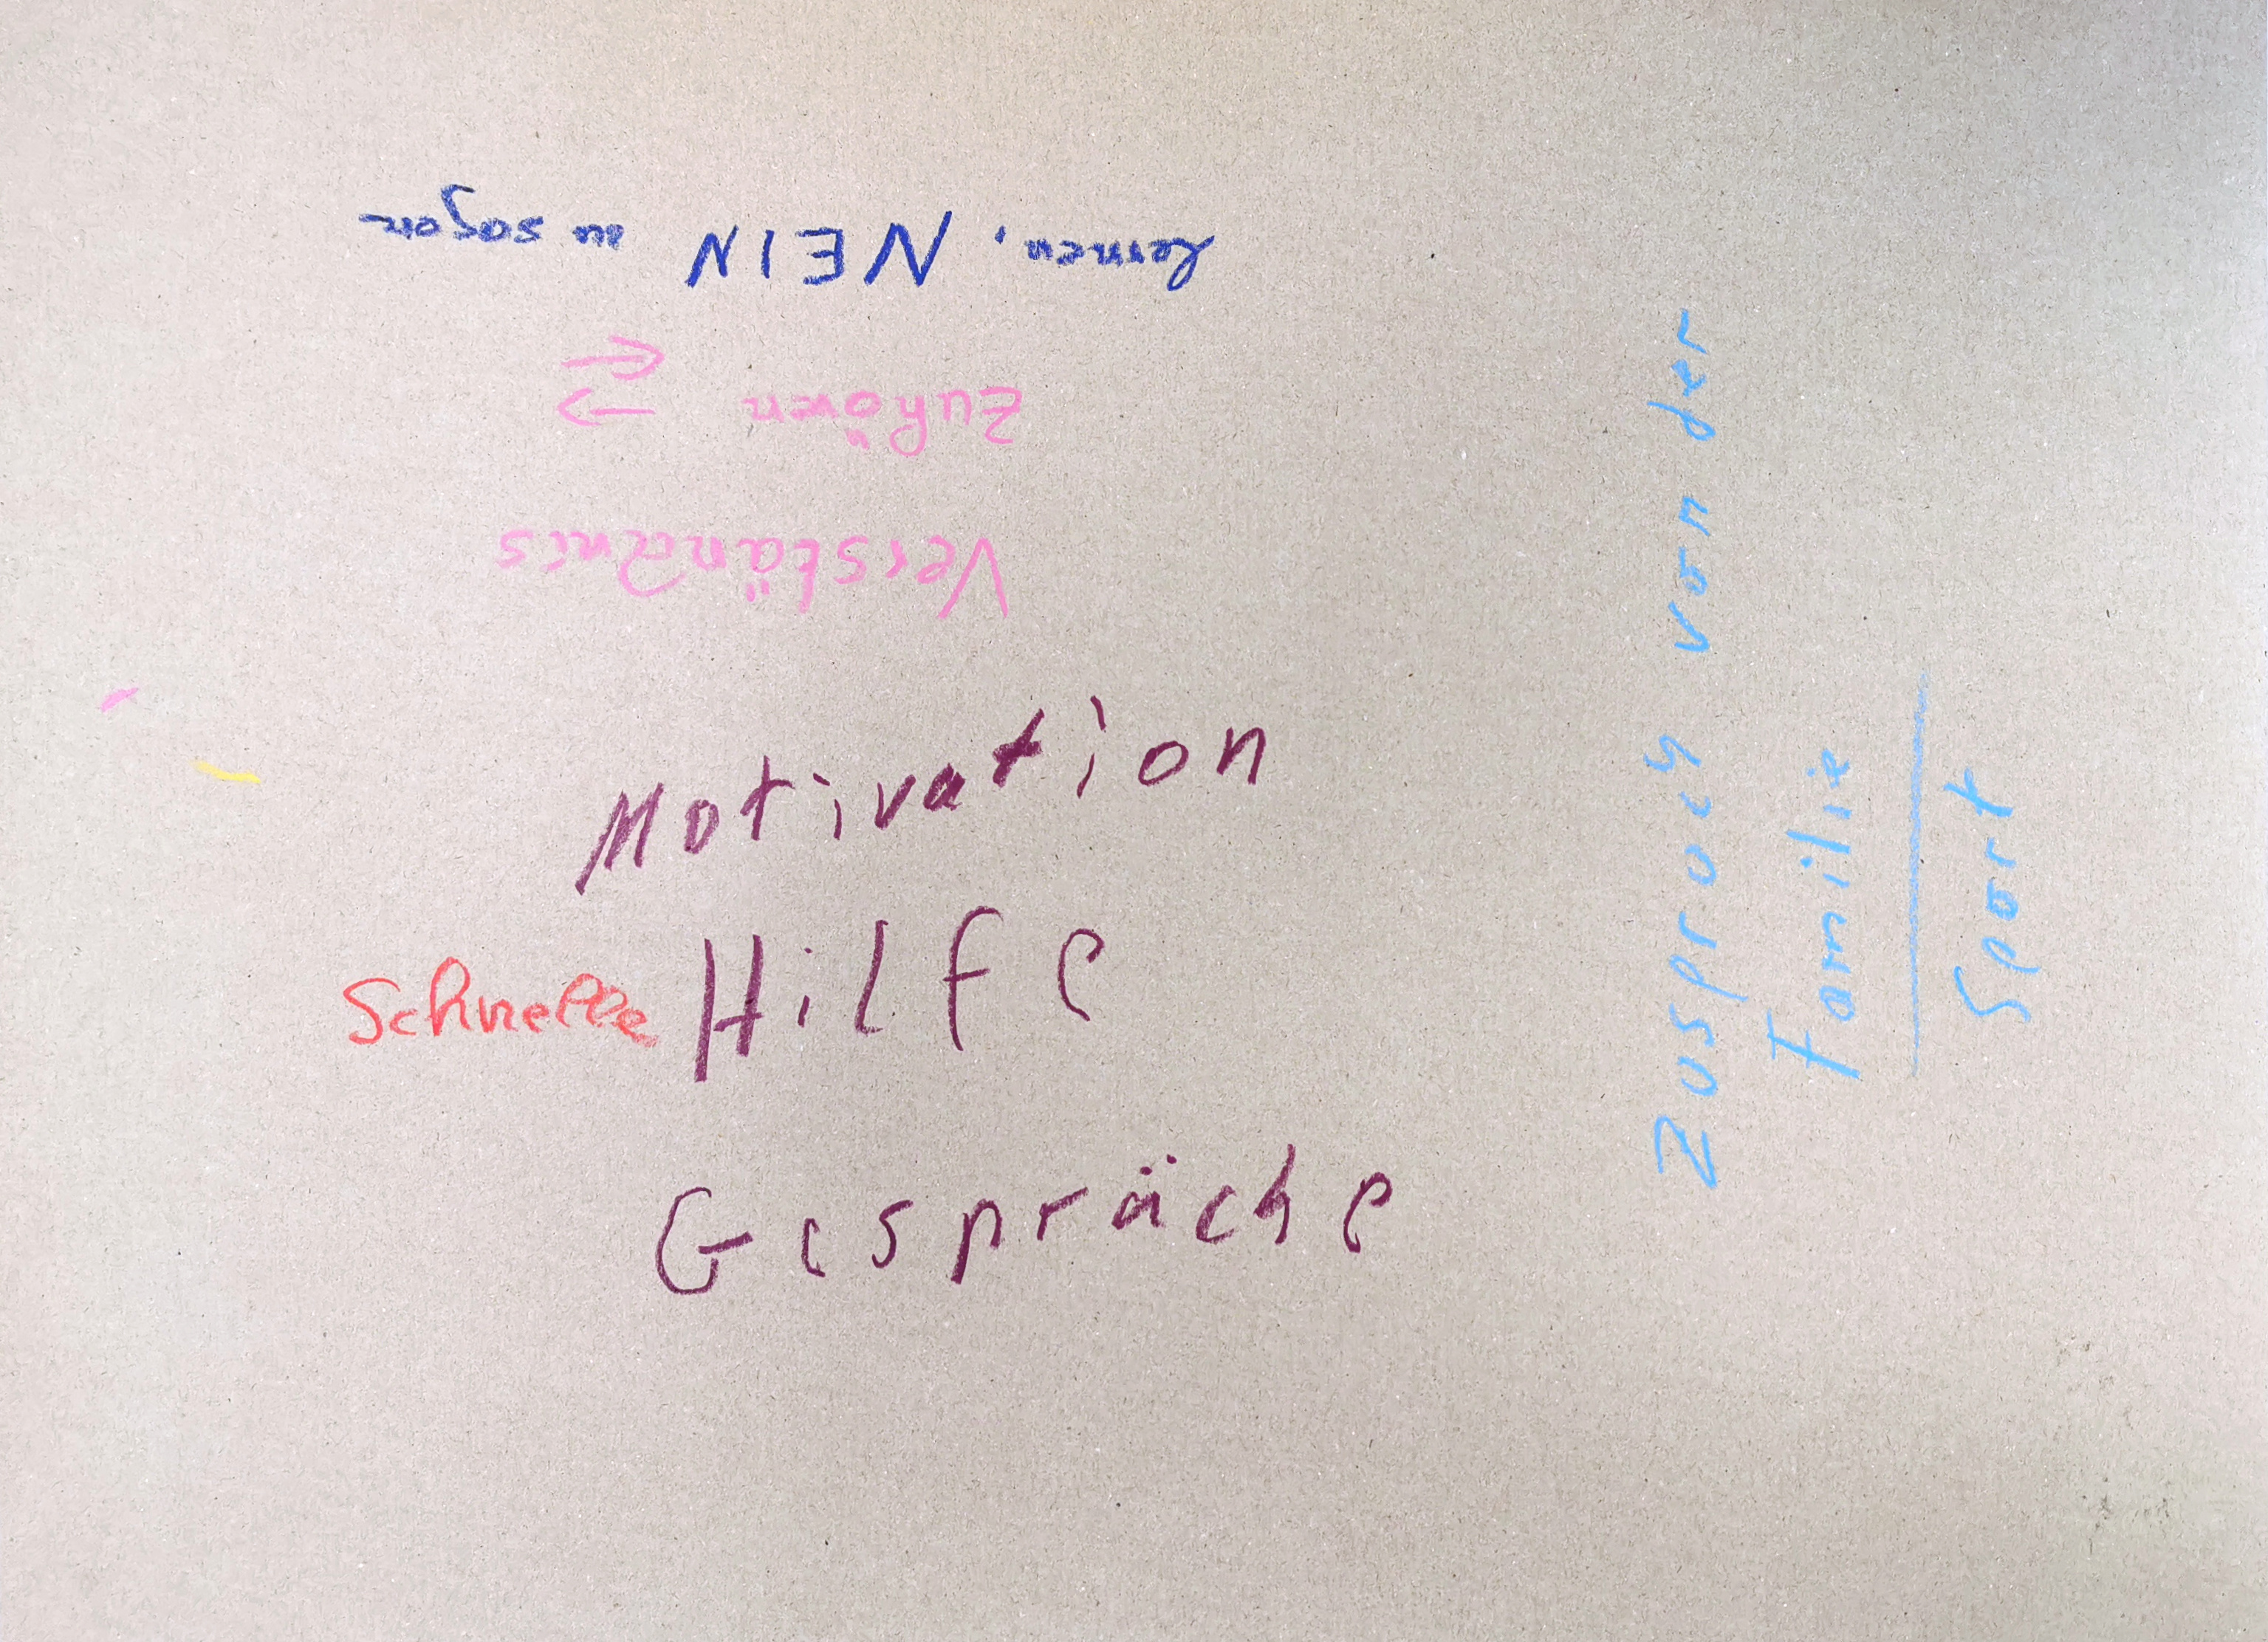 Motivation
Schnelle Hilfe
Gespräche
Verständnis
Zuhören
lernen, NEIN zu sagen
Zuspruch von der
Familie
Sport